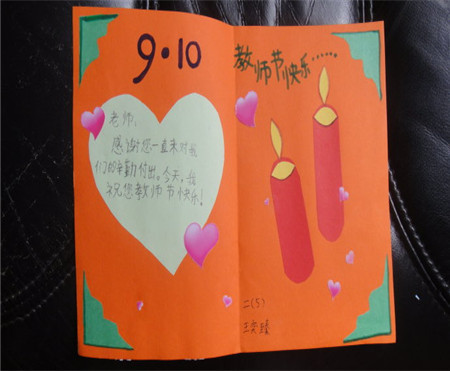 9·10
老师:
感谢您一直来对我
们的辛勤付出。今天,我
祝您教师节快乐!
教师节快乐……
二(5)